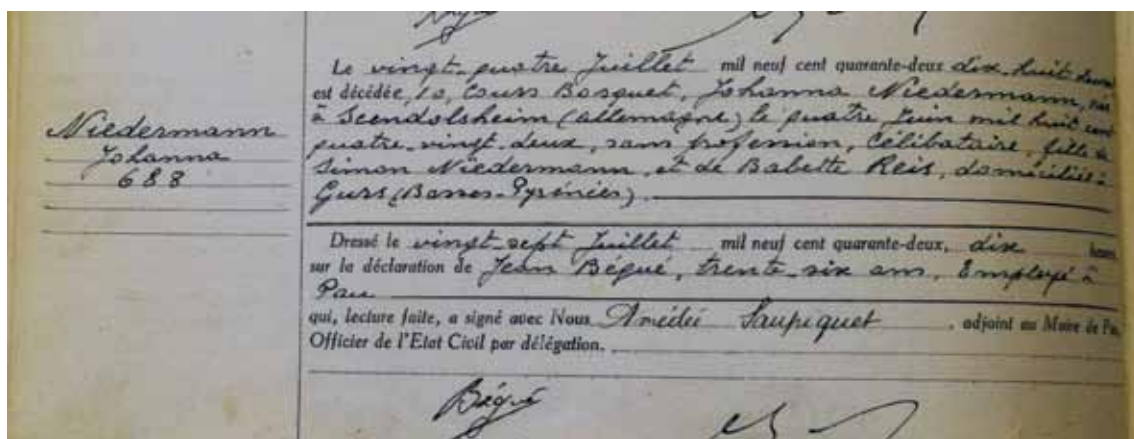 Niedermann
Johanna
688
Le vingt-quatre Juillet mil neuf cent quarante-deux dix-huit heures
est décédée, 10, Cours Bosquet, Johanna Niedermann, née
à Scendolsheim (Allemagne) le quatre Juin mil huit cent
quatre-vingt-deux, sans profession, célibataire, fille de
Simon Niedermann, et de Babette Reis, domiciliée à
Gurs (Basses-Pyrénées).
Dressé le vingt-sept Juillet mil neuf cent quarante-deux, dix heures
sur la déclaration de Jean Bégué, trente-six ans, Employé à
Pau
qui, lecture faite, a signé avec Nous Amédée Saupiquet, adjoint au Maire de Pau,
Officier de l'Etat Civil par délégation.
Bégué